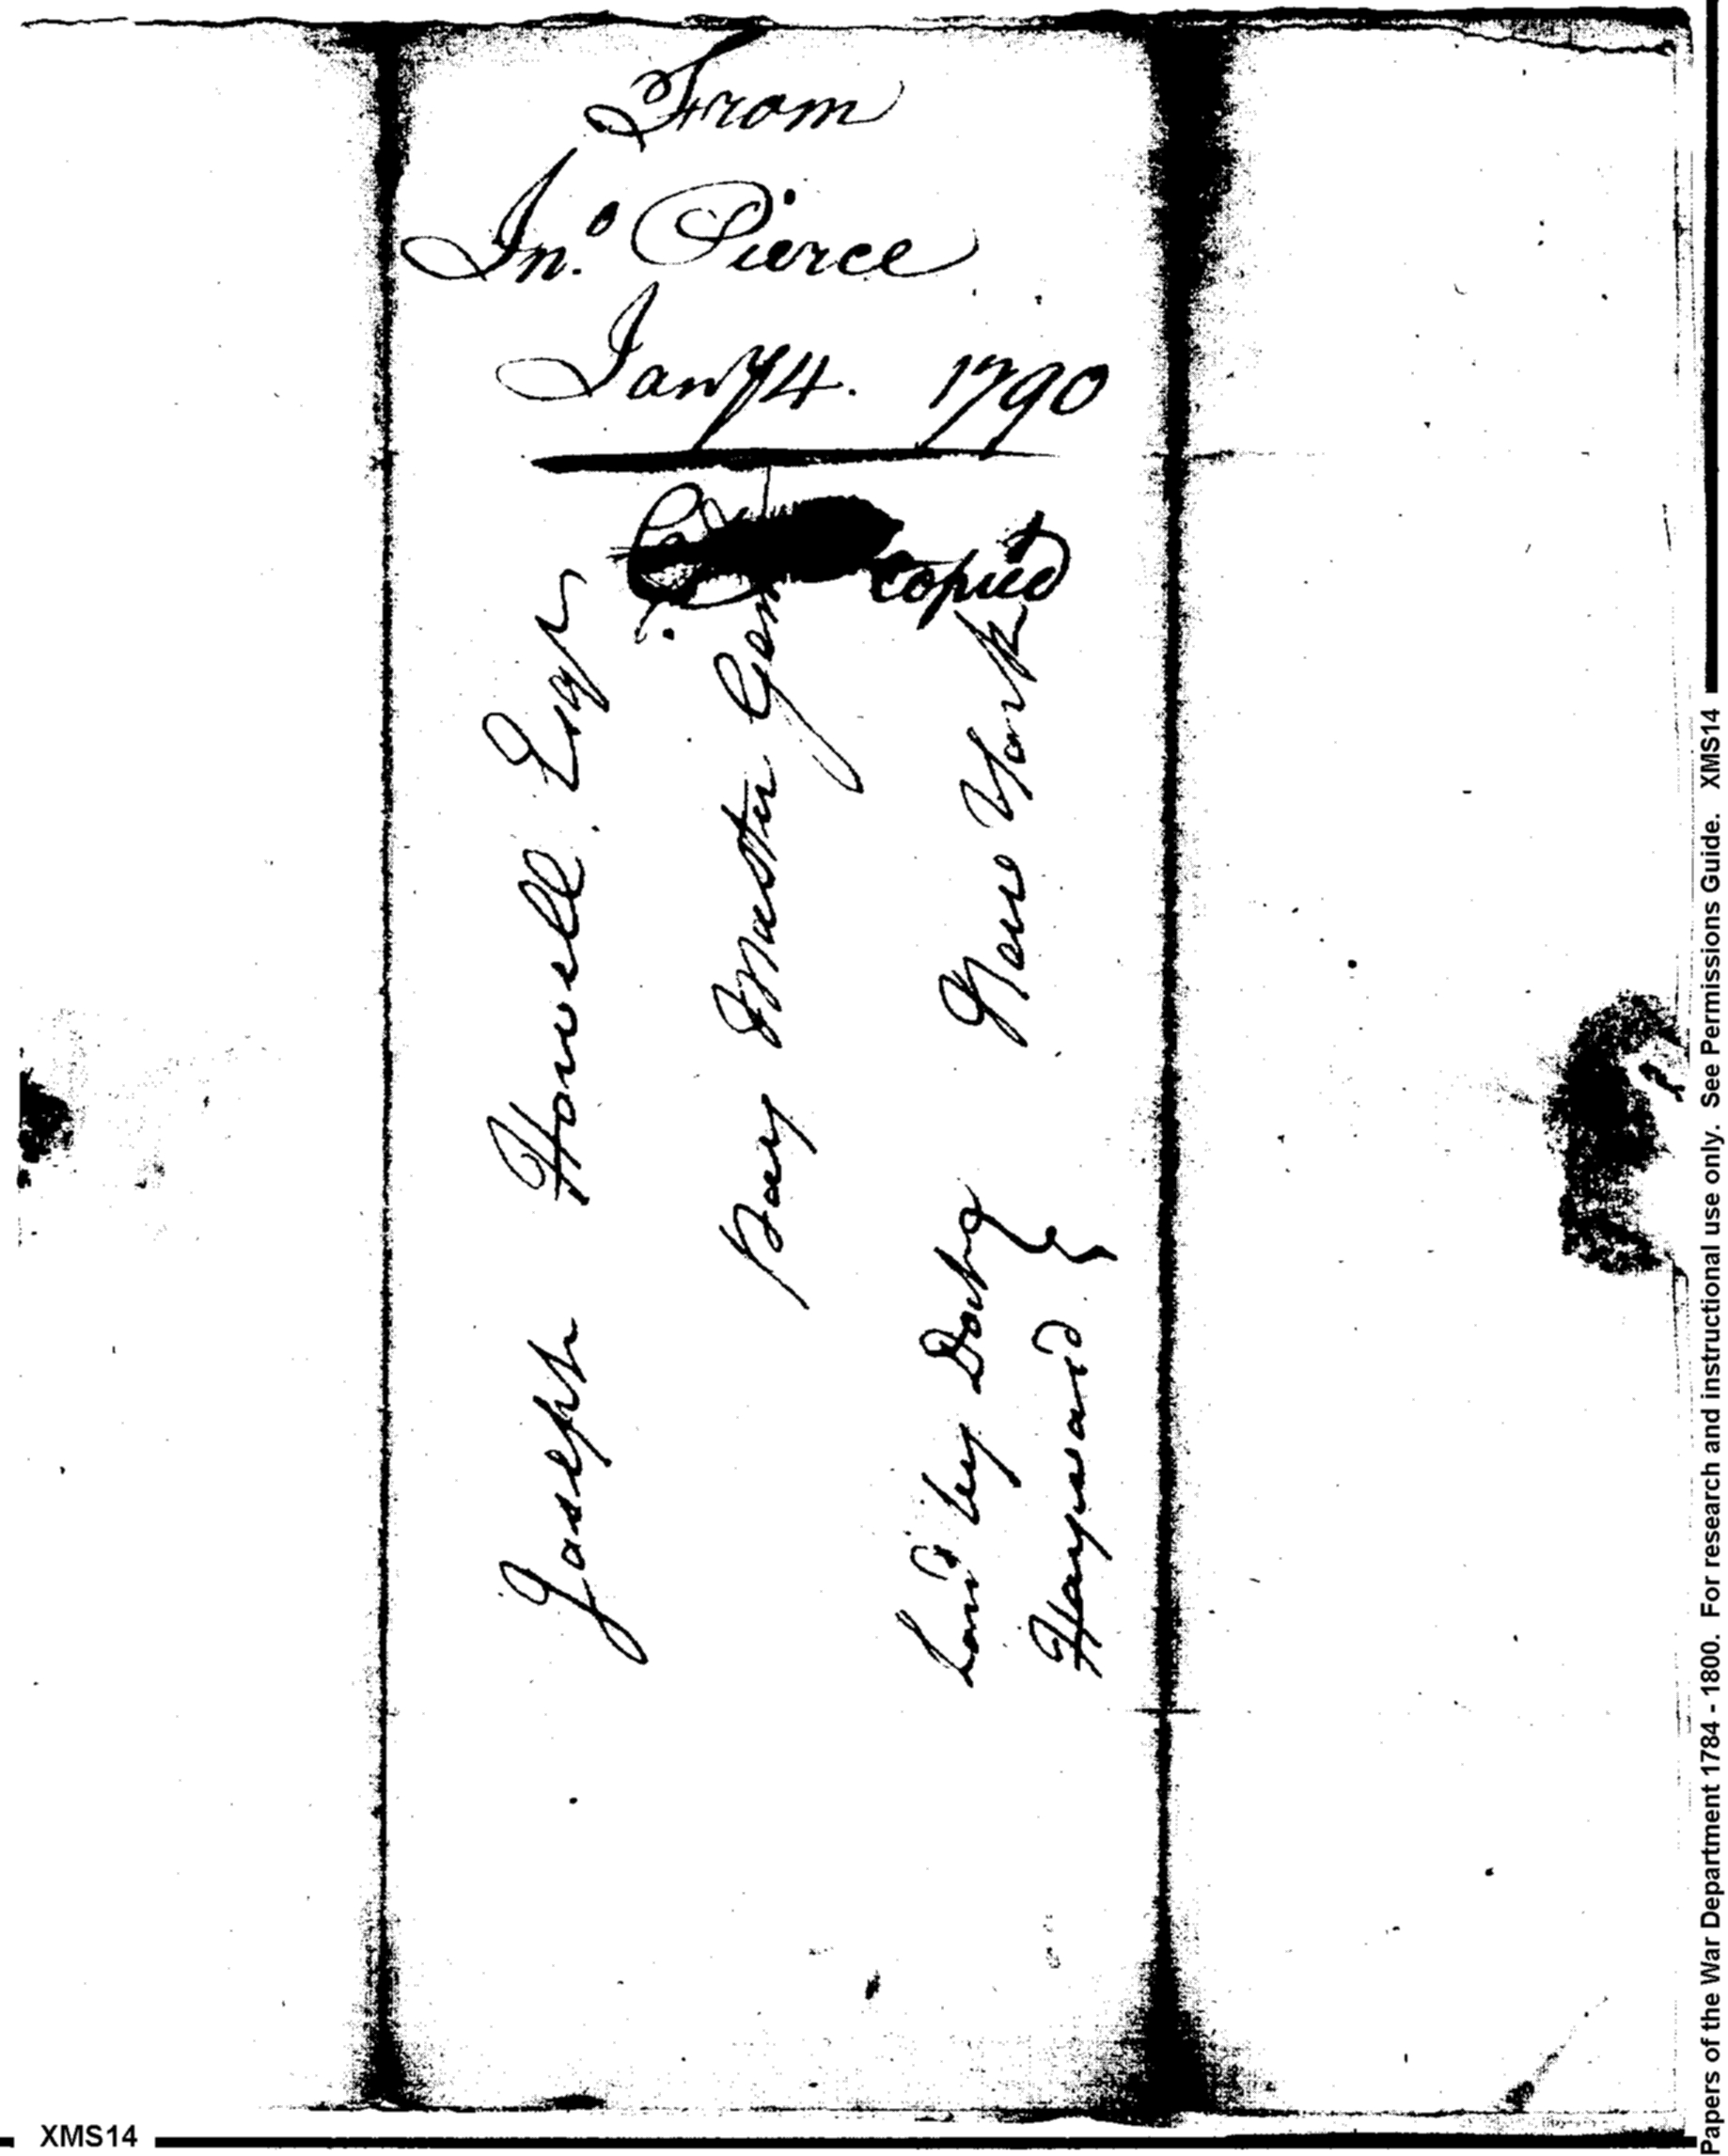 From
Jno. Pierce
Jany 4. 1790
copied
Joseph Howell Esqr
Pay Master Genl
New York
hand by Doctr
Hayward
XMS14
Papers of the War Department 1784 - 1800. For research and instructional use only. See Permissions Guide. XMS14